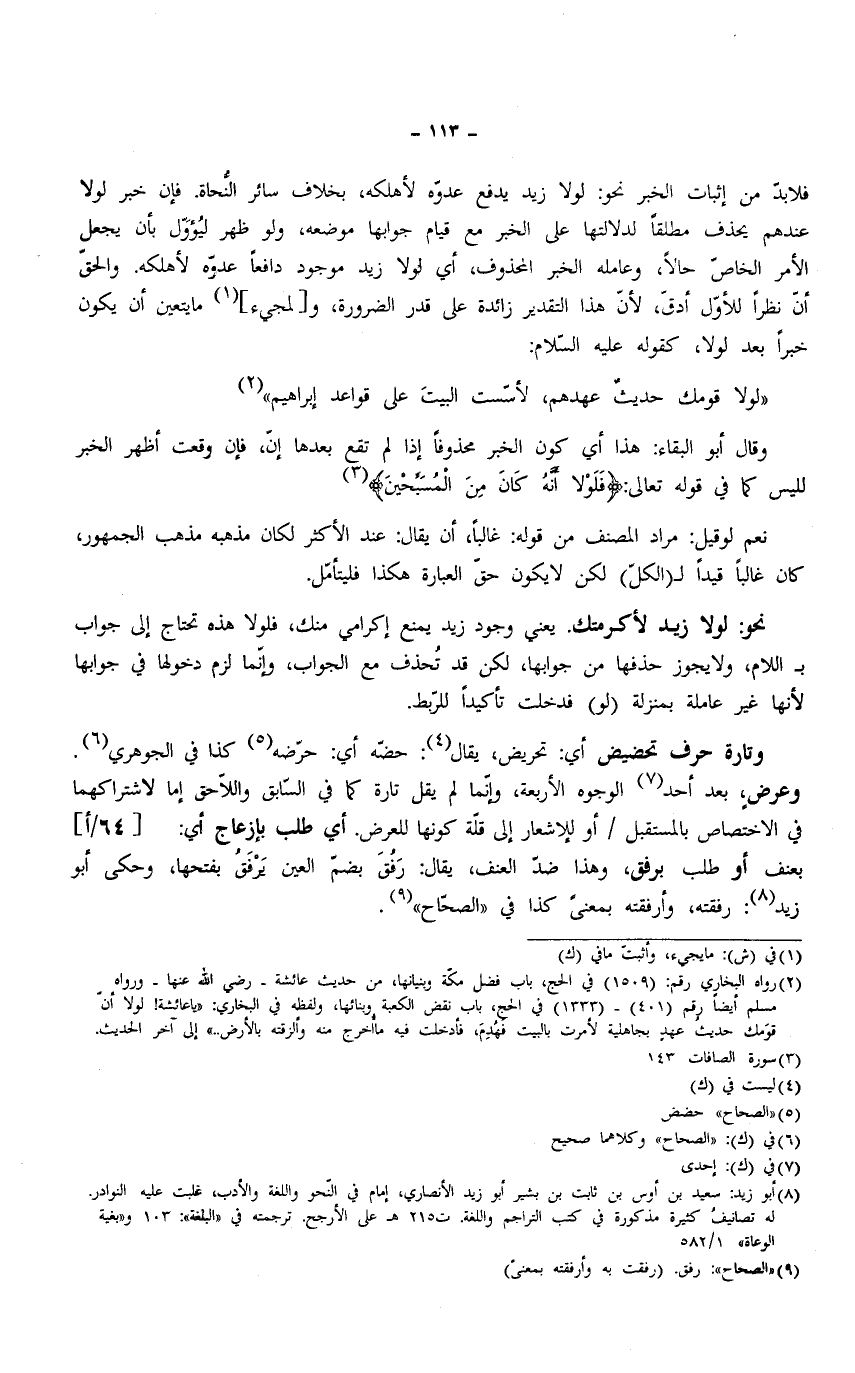 - ١١٣ -
فلابدّ من إثبات الخبر نحو: لولا زيد يدفع عدوّه لأهلكه، بخلاف سائر النُّحاة. فإن خبر لولا
عندهم يحذف مطلقاً لدلالتها على الخبر مع قيام جوابها موضعه، ولو ظهر لَيُؤوّل بأن يجعل
الأمر الخاصّ حالاً، وعامله الخبر المحذوف، أي لولا زيد موجود دافعاً عدوّه لأهلكه. والحقّ
أنّ نظراً للأوّل أدقّ، لأنّ هذا التقدير زائدة على قدر الضرورة، و[لمجيء](١) مايتعين أن يكون
خبراً بعد لولا، كقوله عليه السّلام:
«لولا قومك حديثٌ عهدهم، لأسّست البيتَ على قواعد إبراهيم»(٢)
وقال أبو البقاء: هذا أي كون الخبر محذوفاً إذا لم تقع بعدها إنّ، فإن وقعت أظهر الخبر
لليس كما في قوله تعالى:﴿فَلَوْلا أَنَّهُ كَانَ مِنَ الْمُسَبِّحْينَ﴾(٣)
نعم لوقيل: مراد المصنف من قوله: غالباً، أن يقال: عند الأكثر لكان مذهبه مذهب الجمهور،
كان غالباً قيداً لـ(الكلّ) لكن لايكون حقّ العبارة هكذا فليتأمّل.
نحو: لولا زيد لأكرمتك. يعني وجود زيد يمنع إكرامي منك، فلولا هذه تحتاج إلى جواب
بـ اللام، ولايجوز حذفها من جوابها، لكن قد تُحذف مع الجواب، وإنّما لزم دخولها في جوابها
لأنها غير عاملة بمنزلة (لو) فدخلت تأكيداً للرّبط.
وتارة حرف تحضيض أي: تحريض، يقال(٤): حضّه أي: حرّضه(٥) كذا في الجوهري(٦).
وعرضٍ، بعد أحد(٧) الوجوه الأربعة، وإنّما لم يقل تارة كما في السّابق واللاّحق إما لاشتراكهما
في الاختصاص بالمستقبل / أو للإشعار إلى قلّة كونها للعرض. أي طلب بإزعاج أي: [٦٤/أ]
بعنف أو طلب برفق، وهذا ضدّ العنف، يقال: رَفُقَ بضمّ العين يَرْفَقُ بفتحها، وحكى أبو
زيد(٨): رفقته، وأرفقته بمعنىً كذا في «الصحّاح»(٩).
(١)في (ش): مايجيء، وأثبتّ مافي (ك)
(٢)رواه البخاري رقم: (١٥٠٩) في الحج، باب فضل مكّة وبنيانها، من حديث عائشة - رضي الله عنها - ورواه
مسلم أيضاً رقم (٤٠١) - (١٣٣٣) في الحج، باب نقض الكعبة وبنائها، ولفظه في البخاري: «ياعائشة! لولا أنّ
قوَمك حديثُ عهدٍ بجاهلية لأمرت بالبيت فَهُدِمَ، فأدخلت فيه ماأُخرج منه وألزقته بالأرض..» إلى آخر الحديث.
(٣)سورة الصافات ١٤٣
(٤)ليست في (ك)
(٥)«الصحاح» حضض
(٦)في (ك): «الصحاح» وكلاهما صحيح
(٧)في (ك): إحدى
(٨)أبو زيد: سعيد بن أوس بن ثابت بن بشير أبو زيد الأنصاري، إمام في النّحو واللغة والأدب، غلبت عليه النوادر.
له تصانيفُ كثيرة مذكورة في كتب التراجم واللغة. ت٢١٥ هـ على الأرجح. ترجمته في «البلغة»: ١٠٣ و«بغية
الوعاة» ٥٨٢/١
(٩)«الصحاح»: رفق. (رفقت به وأرفقته بمعنىً)